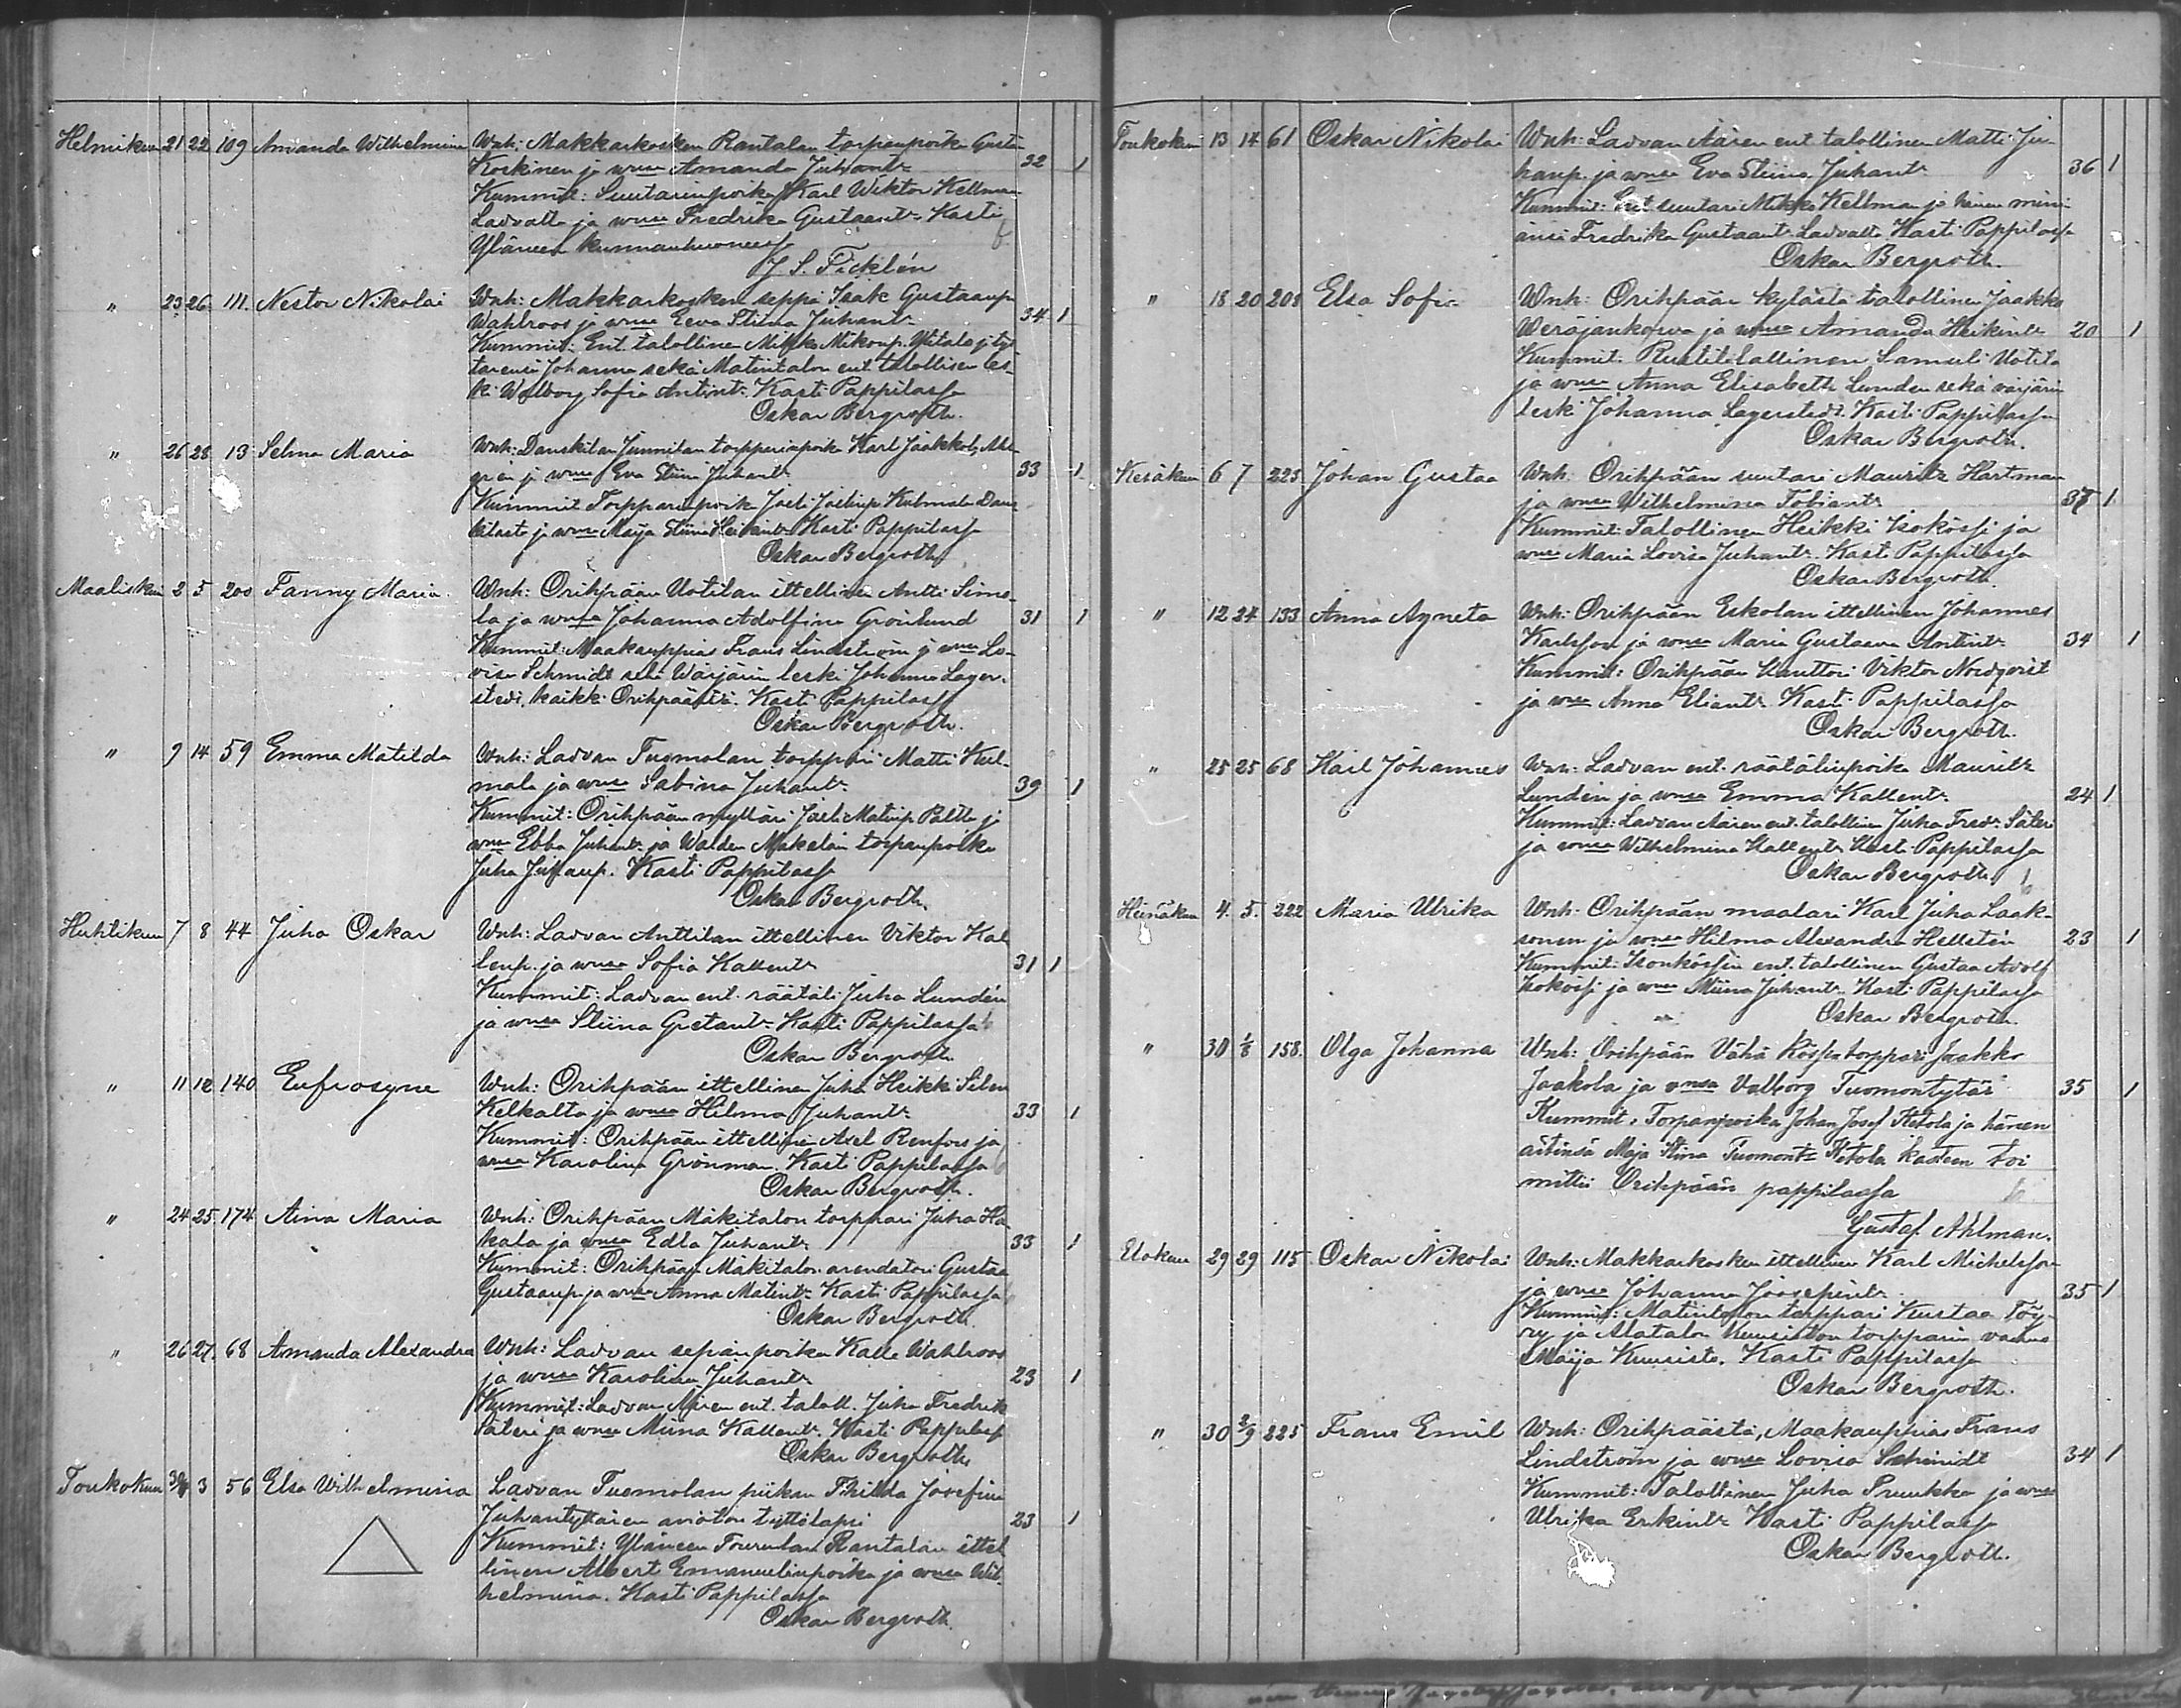 Helmikuu 21 22 109 Amanda Wilhelmina Wnh: Makkarkosken Rantalan torpanpoika Gusta
Koskinen ja wmsa Amanda Juhantr 32 1
Kummit: Suutarinpoika Karl Wiktor Kellman
Ladvalta ja wmsa Fredrika Gustaantr Kasti
Yläneen kunnanhuoneessa
J. S. Ficklén
" 23 26 111. Nestor Nikolai Wnh: Makkarkosken seppä Isak Gustaanp
Wahlroos ja wmsa Eeva Stiina Juhantr 34 1
Kummit: Ent. talollinen Mikko Mikonp.
tärensä Johanna sekä Matintalon ent. talollisen les-
ki Walborg Sofia Antintr. Kasti Pappilassa
Oskar Bergroth.
" 26 28 13 Selma Maria Wnh: Danskilan Junnilan torpparinpoika Karl Jaakkola
ja wmsa Eva Stiina Juhantr 33 1
Kummit Torpparinpoika Joeli Kulmala
ja wmsa Maija Stiina Heikintr Kasti Pappilassa
Oskar Bergroth
Maaliskuu 2 5 200 Fanny Maria. Wnh: Orihpään Uotilan ittellinen Antti Simo-
la ja wmsa Johanna Adolfina Grönlund 31 1
Kummit: Maakauppias Frans Lindström ja wmsa Lo-
visa Schmidt sekä Wärjärin leski Johanna Lager-
stedt, kaikki Orihpäästä. Kasti Pappilassa
Oskar Bergroth.
" 9 14 59 Emma Matilda Wnh: Ladvan Tuomolan torppari Matti Kul-
mala ja wmsa Sabina Juhantr 39 1
Kummit: Orihpään myllari Joeli Matinp. Paltta ja
wmsa Ebba Juhantr ja Walden Mäkelän torpanpoika
Juha Juhanp. Kasti Pappilassa
Oskar Bergroth.
Huhtikuu 7 8 44 Juha Oskar Wnh: Ladvan Anttilan ittellinen Viktor Kal
lenp. ja wmsa Sofia Kallentr 31 1
Kummit: Ladvan ent. räätäli Juha Lundén
ja wmsa Stiina Gretantr Kasti Pappilassa
Oskar Bergroth.
" 11 12 140 Eufrosyne Wnh: Orihpään ittellinen Juha Heikki Silen
Kelkalta ja wmsa Hilma Juhantr 33 1
Kummit: Orihpään ittellinen Axel Renfors ja
wmsa Karolina Grönman. Kasti Pappilassa
Oskar Bergroth.
" 24 25 174 Aina Maria Wnh: Orihpään Mäkitalon torppari Juha Ha-
kala ja wmsa Edla Juhantr 33 1
Kummit: Orihpään Mäkitalon arendatori Gustaa
Gustaanp. ja wmsa Anna Matintr Kasti Pappilassa
Oskar Bergroth
" 26 27. 68 Amanda Alexandra Wnh: Ladvan sepänpoika Kalle Wahlroos
ja wmsa Karolina Juhantr 23 1
Kummit: Ladvan Äären ent. taloll. Juha Fredrik
Säteri ja wmsa Miina Kallentr. Kasti Pappilassa
Oskar Bergroth.
Toukokuu 30/4 3 56 Elsa Wilhelmina Ladvan Tuomolan piikan Thilda Josefina
Juhantyttären avioton tyttölapsi 23 1
Kummit: Yläneen Tourulan Rantalan ittel
linen Albert Emanuelinpoika ja wmsa Wil-
helmina. Kasti Pappilassa
Oskar Bergroth.
Toukokuu 13 14 61 Oskar Nikolai Wnh: Ladvan Äären ent talollinen Matti Ju-
hanp. ja wmsa Eva Stiina Juhantr 36 1
Kummit: Ent suutari Mikko Kellman ja hänen mini-
änsä Fredrika Gustaantr Ladvalta Kasti Pappilassa
Oskar Bergroth.
" 18 20 208 Elsa Sofia Wnh: Orihpään kylästä talollinen Jaakko
Weräjänkorva ja wmsa Amanda Heikintr 20 1
Kummit. Rustitilallinen Samuli Uotila
ja wmsa Anna Elisabeth Lunden sekä värjärin
leski Johanna Lagerstedt. Kasti Pappilassa
Oskar Bergroth.
Kesäkuu 6 7 223 Johan Gustaa Wnh: Orihpään suutari Mauritz Hartman
ja wmsa Wilhelmina Tobiantr 37 1
Kummit: Talollinen Heikki Isokössi ja
wmsa Maria Lovisa Juhantr. Kasti Pappilassa
Oskar Bergroth.
" 12 24 133 Anna Agneta Wnh: Orihpään Eskolan ittellinen Johannes
Karlsson ja wmsa Maria Gustaava Antintr 34 1
Kummit: Orihpään Kanttori Viktor Nordqvist
ja wmsa Anna Eliantr. Kasti Pappilassa
Oskar Bergroth.
" 25 25 68 Karl Johannes Wnh: Ladvan ent. räätälinpoika Mauritz
Lundén ja wmsa Emma Kallentr 24 1
Kummit: Ladvan Äären ent. talollinen Juha Fredr. Säteri
ja wmsa Wilhelmina Kallentr. Kasti Pappilassa
Oskar Bergroth.
Heinäkuu 4. 5. 222 Maria Ulrika Wnh: Orihpään maalari Karl Juha Laak-
sonen ja wmsa Hilma Alexandra Hellstén 23 1
Kummit: Isonkössin ent. talollinen Gustaa Adolf
Isokössi ja wmsa Miina Juhantr. Kasti Pappilassa
Oskar Bergroth.
" 30 1/8 158. Olga Johanna Wnh: Orihpään Vähä Kössin torppari Jaakko
Jaakola ja vmsa Valborg Tuomontytär 35 1
Kummit: Torpanpoika Johan Josef Ketola ja hänen
äitinsä Maja Stina Tuomontr Ketola kasteen toi
mitti Orihpään pappilassa
Gustaf Ahlman.
Elokuu 29 29 115 Oskar Nikolai Wnh: Makkarkosken ittellinen Karl Michelsson
ja wmsa Johanna Joosepintr 35 1
Kummit: Matintalon torppari Kustaa Töy-
ry ja Alatalon Kuusiston torpparin vaimo
Maija Kuusisto. Kasti Pappilassa
Oskar Bergroth.
" 30 2/9 225 Frans Emil Wnh: Orihpäästä, Maakauppias Frans
Lindström ja wmsa Lovisa Schmidt 34 1
Kummit: Talollinen Juha Pruukka ja wmsa
Ulrika Erkintr Kasti Pappilassa
Oskar Bergroth.